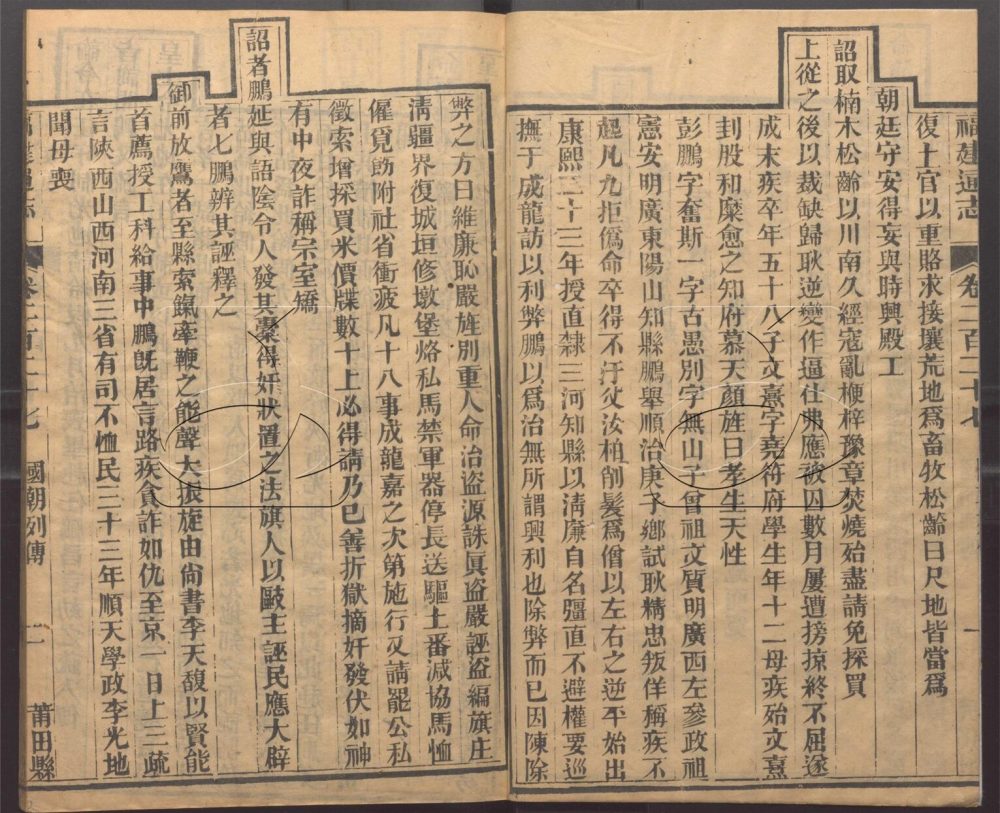 福建通志 卷二百二十七
復上官以重賂求接壤荒地爲畜牧松齡曰尺地皆當爲
朝廷守安得妄與時興殿工
詔取楠木松齡以川南久經寇亂梗梓豫章焚燒殆盡請免採買
上從之後以裁缺歸耿逆變作逼仕弗應被囚數月屢遭搒掠終不屈遂
成末疾卒年五十八子文熹字堯符府學生年十二母疾殆文熹
刲股和糜愈之知府慕天顏旌曰孝生天性
彭鵬字奮斯一字古愚別字無山子曾祖文質明廣西左參政祖
憲安明廣東陽山知縣鵬舉順治庚子鄉試耿精忠叛佯稱疾不
起凡九拒僞命卒得不汙父汝柏削髮爲僧以左右之逆平始出
康熙二十三年授直隸三河知縣以淸廉自名彊直不避權要巡
撫于成龍訪以利弊鵬以爲治無所謂興利也除弊而已因陳除
弊之方曰維廉恥嚴旌別重人命治盜源誅眞盜嚴誣盜編旗庄
淸疆界復城垣修墩堡烙私馬禁軍器停長送驅土番減協馬恤
僱覓飭附社省衝疲凡十八事成龍嘉之次第施行又請罷公私
徵索增採買米價牒數十上必得請乃已善折獄摘奸發伏如神
有中夜詐稱宗室矯
詔者鵬延與語陰令人發其橐得奸狀置之法旗人以毆主誣民應大辟
者七鵬辨其誣釋之
御前放鷹者至縣索餼牽鞭之能聲大振旋由尙書李天馥以賢能
首薦授工科給事中鵬旣居言路疾貪詐如仇至京一日上三疏
言陝西山西河南三省有司不恤民三十三年順天學政李光地
聞母喪
國朝列傳 二 莆田縣